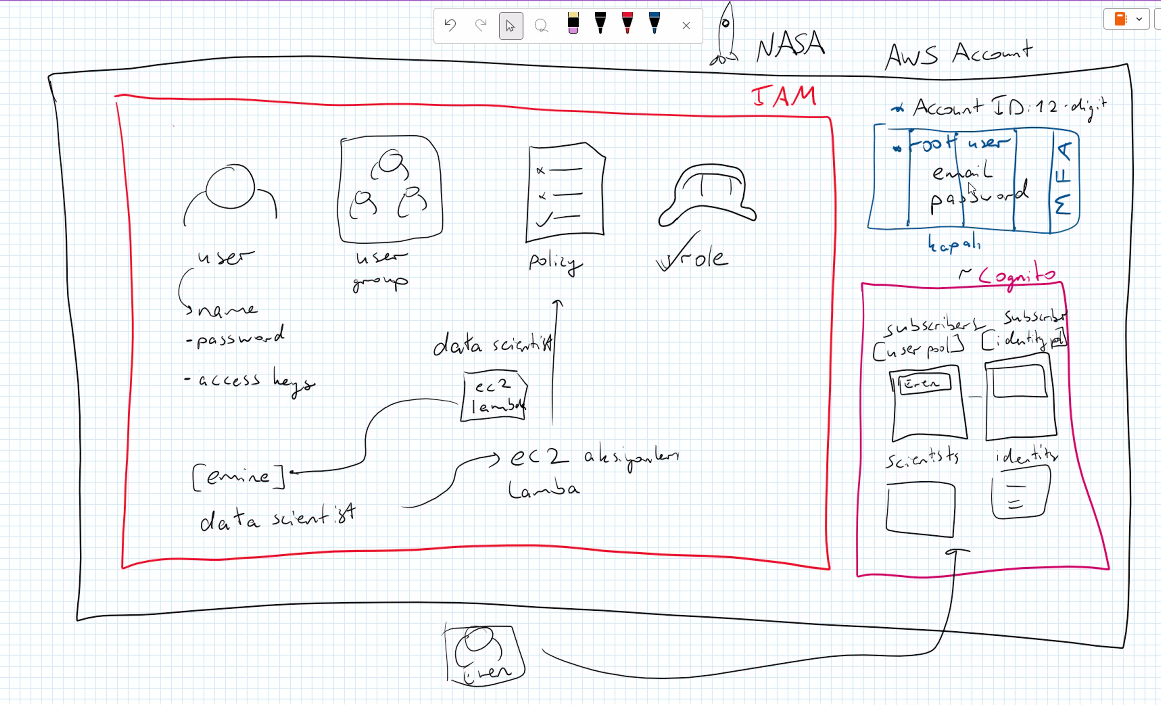 NASA
AWS Account
IAM
* Account ID: 12-digit
* root user
email
password
MFA
kapalı
user
user group
policy
role
name
- password
- access keys
data scientist
ec2
lambda
[emine]
data scientist
ec2 aksiyonları
Lamba
~ Cognito
subscribers
[user pool]
subscriber
[identity pol]
Eren
scientists
identity
Eren